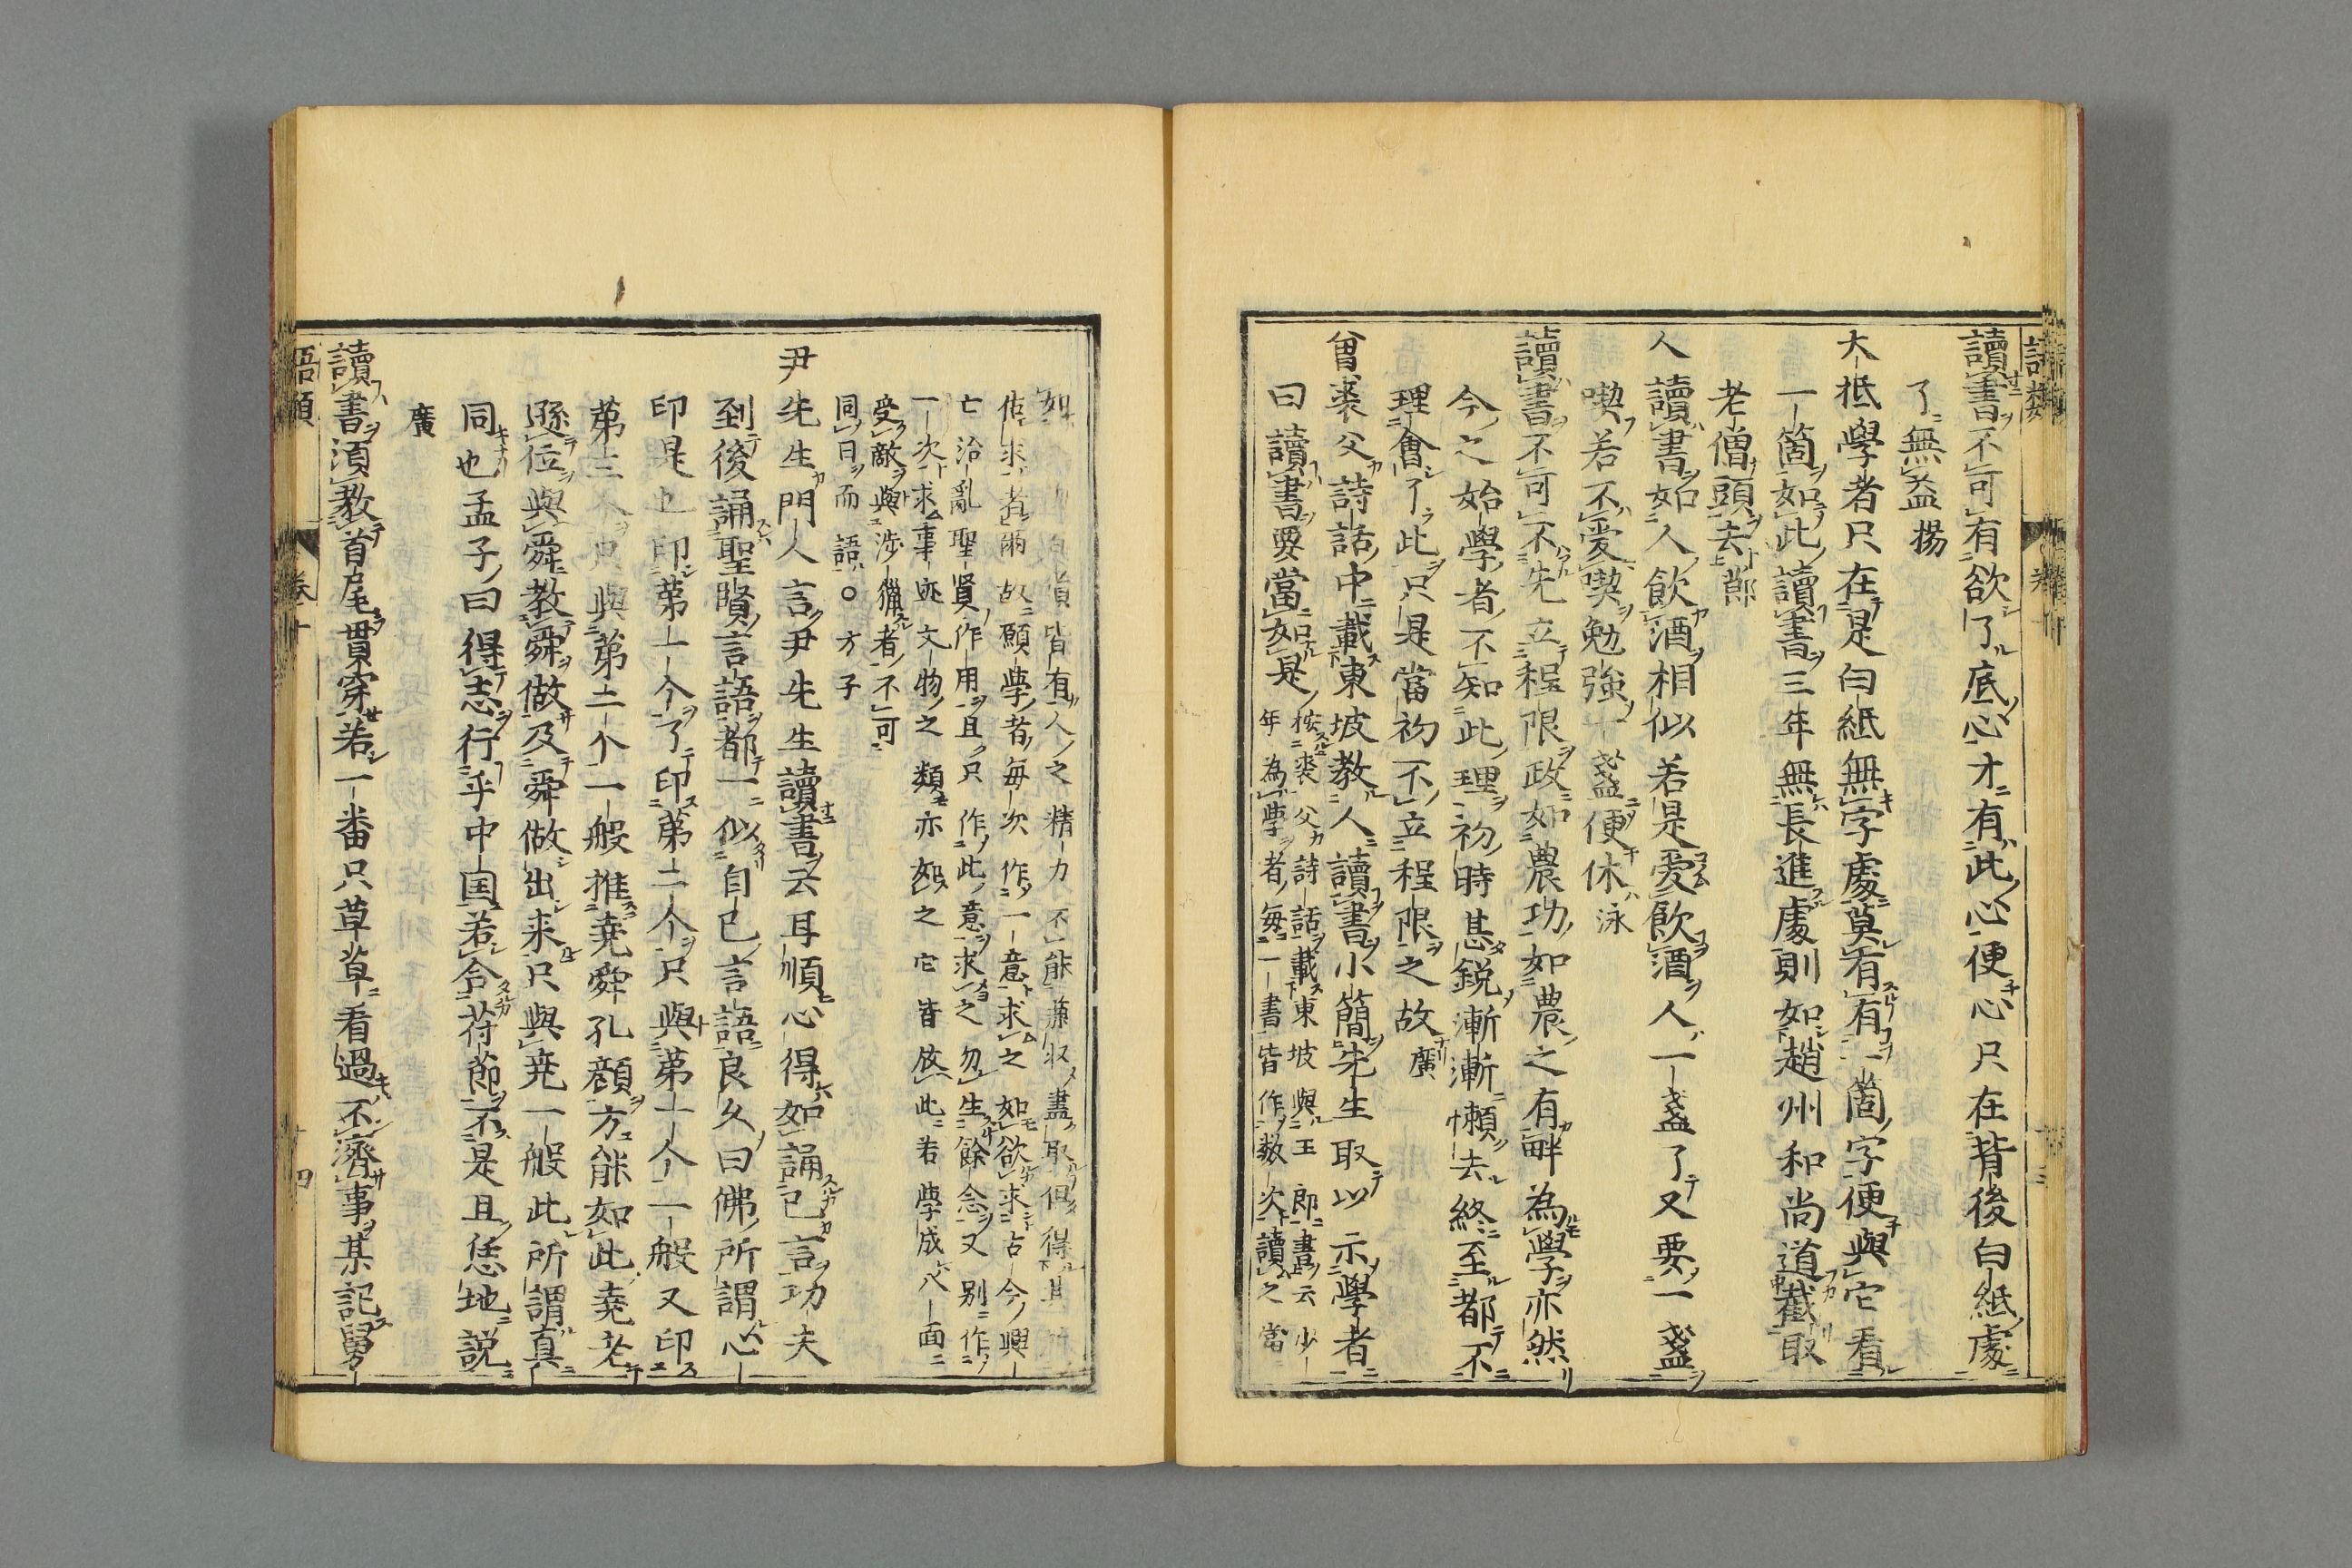 讀書不可有欲了底心才有此心便心只在背後白紙處
了無益 揚
大抵學者只在是白紙無字處莫看有一箇字便與它看
一箇如此讀書三年無長進處則如趙州和尚道截取
老僧頭去 節
人讀書如人飲酒相似若是愛飲酒人一盞了又要一盞
喫若不愛喫勉強一盞便休 泳
讀書不可不先立程限政如農功如農之有畔為學亦然
今之始學者不知此理初時甚鋭漸漸懶去終至都不
理會了此只是當初不立程限之故 廣
曾裘父詩話中載東坡教人讀書小簡先生取以示學者
曰讀書要當如是 按裘父詩話載東坡與王郎書云少
年為學者毎一書皆作數次讀之當
皆有人之精力不能兼収盡取但得其
求者爾故願學者毎次作一意求之如欲求古今興
亡治亂聖賢作用且只作此意求之勿生餘念又别作
一次求事迹文物之類亦如之它皆放此若學成八面
受敵與涉獵者不可
同日而語○方子
尹先生門人言尹先生讀書云耳順心得如誦己言功夫
到後誦聖賢言語都一似自己言語良久曰佛所謂心
印是也印第一个了印第二个只與第一个一般又印
第三个只與第二个一般推尭舜孔顔方能如此尭老
遜位與舜教舜做及舜做出来只與尭一般此所謂真
同也孟子曰得志行乎中国若合符節不是且恁地説
廣
讀書須教首尾貫穿若一番只草草看過不濟事某記舅
語類 巻十 十四